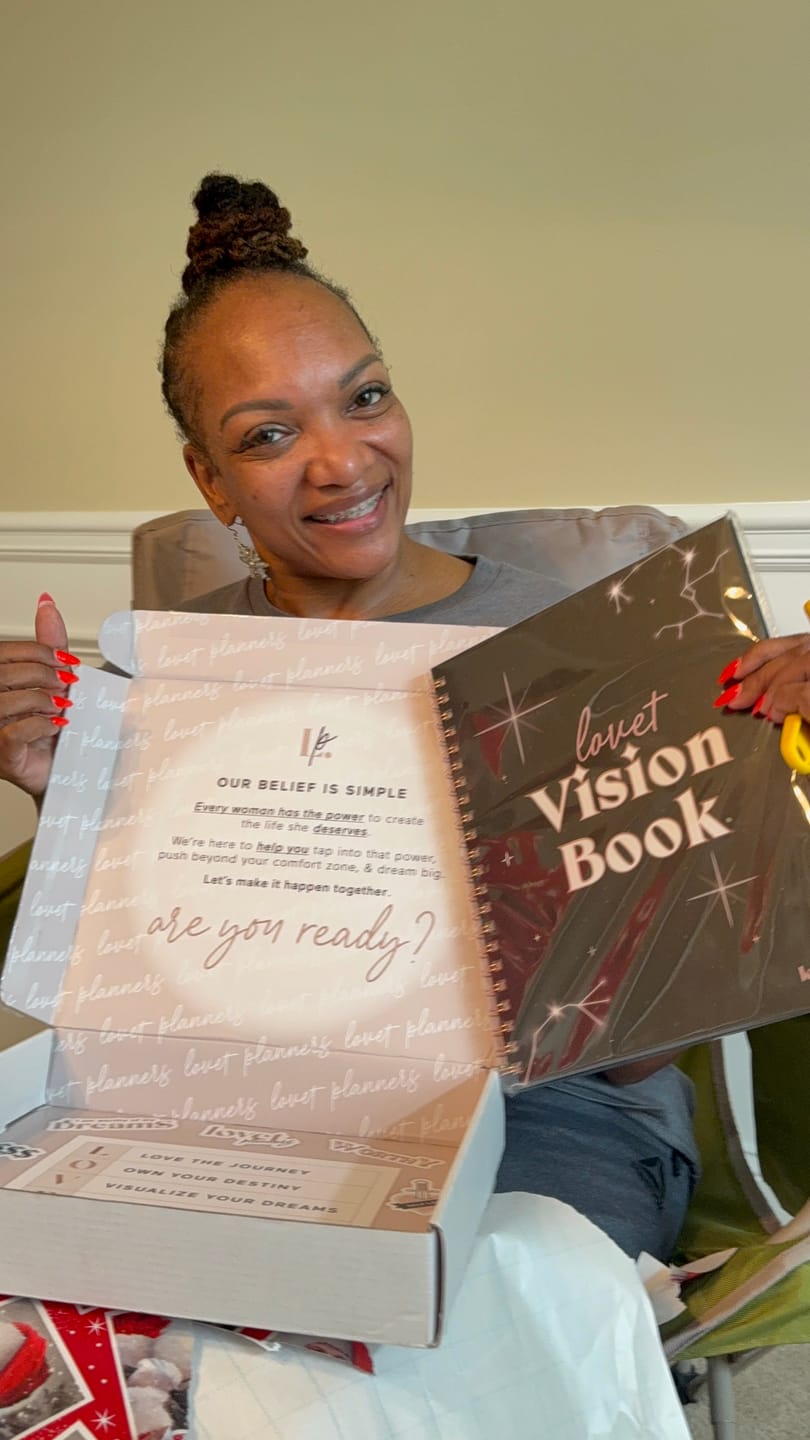 lovet planners
Lp.
OUR BELIEF IS SIMPLE
Every woman has the power to create
the life she deserves.
We're here to help you tap into that power,
push beyond your comfort zone, & dream big.
Let's make it happen together.
are you ready?
lovet planners lovet planners
lovet
Vision
Book
Dreams
lovet
WORTHY
LOV
LOVE THE JOURNEY
OWN YOUR DESTINY
VISUALIZE YOUR DREAMS